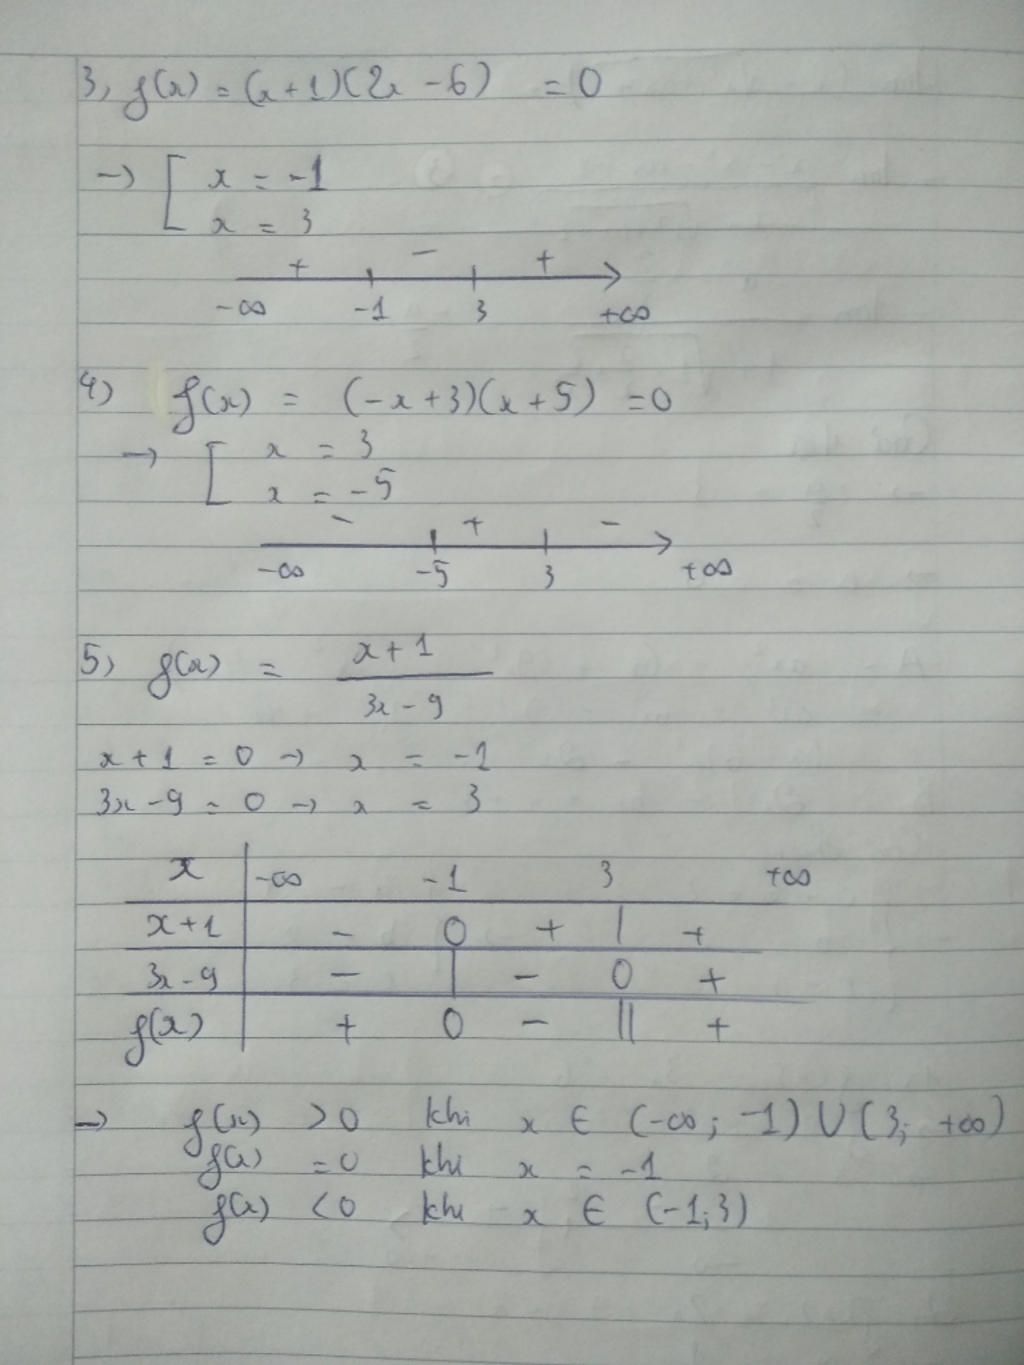 3, f(x) = (x+1)(2x-6) = 0
→ [ x = -1
x = 3
+ - +
-∞ -1 3 +∞
4) f(x) = (-x+3)(x+5) = 0
→ [ x = 3
x = -5
- + -
-∞ -5 3 +∞
5, f(x) = x+1
3x-9
x+1 = 0 → x = -1
3x-9 = 0 → x = 3
x | -∞ -1 3 +∞
x+1 | - 0 + | +
3x-9 | - | - 0 +
f(x) | + 0 - || +
→ f(x) > 0 khi x ∈ (-∞; -1) ∪ (3; +∞)
f(x) = 0 khi x = -1
f(x) < 0 khi x ∈ (-1;3)